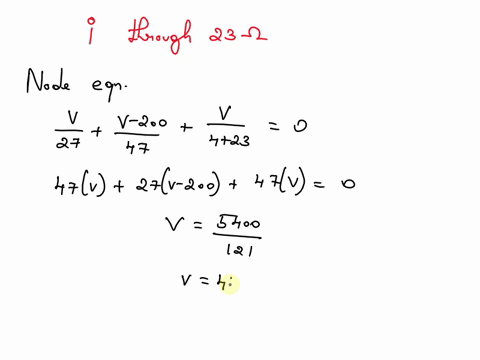 i through 23 Ω
Node eqn.
V/27 + V-200/47 + V/4+23 = 0
47(V) + 27(V-200) + 47(V) = 0
V = 5400/121
V = 4